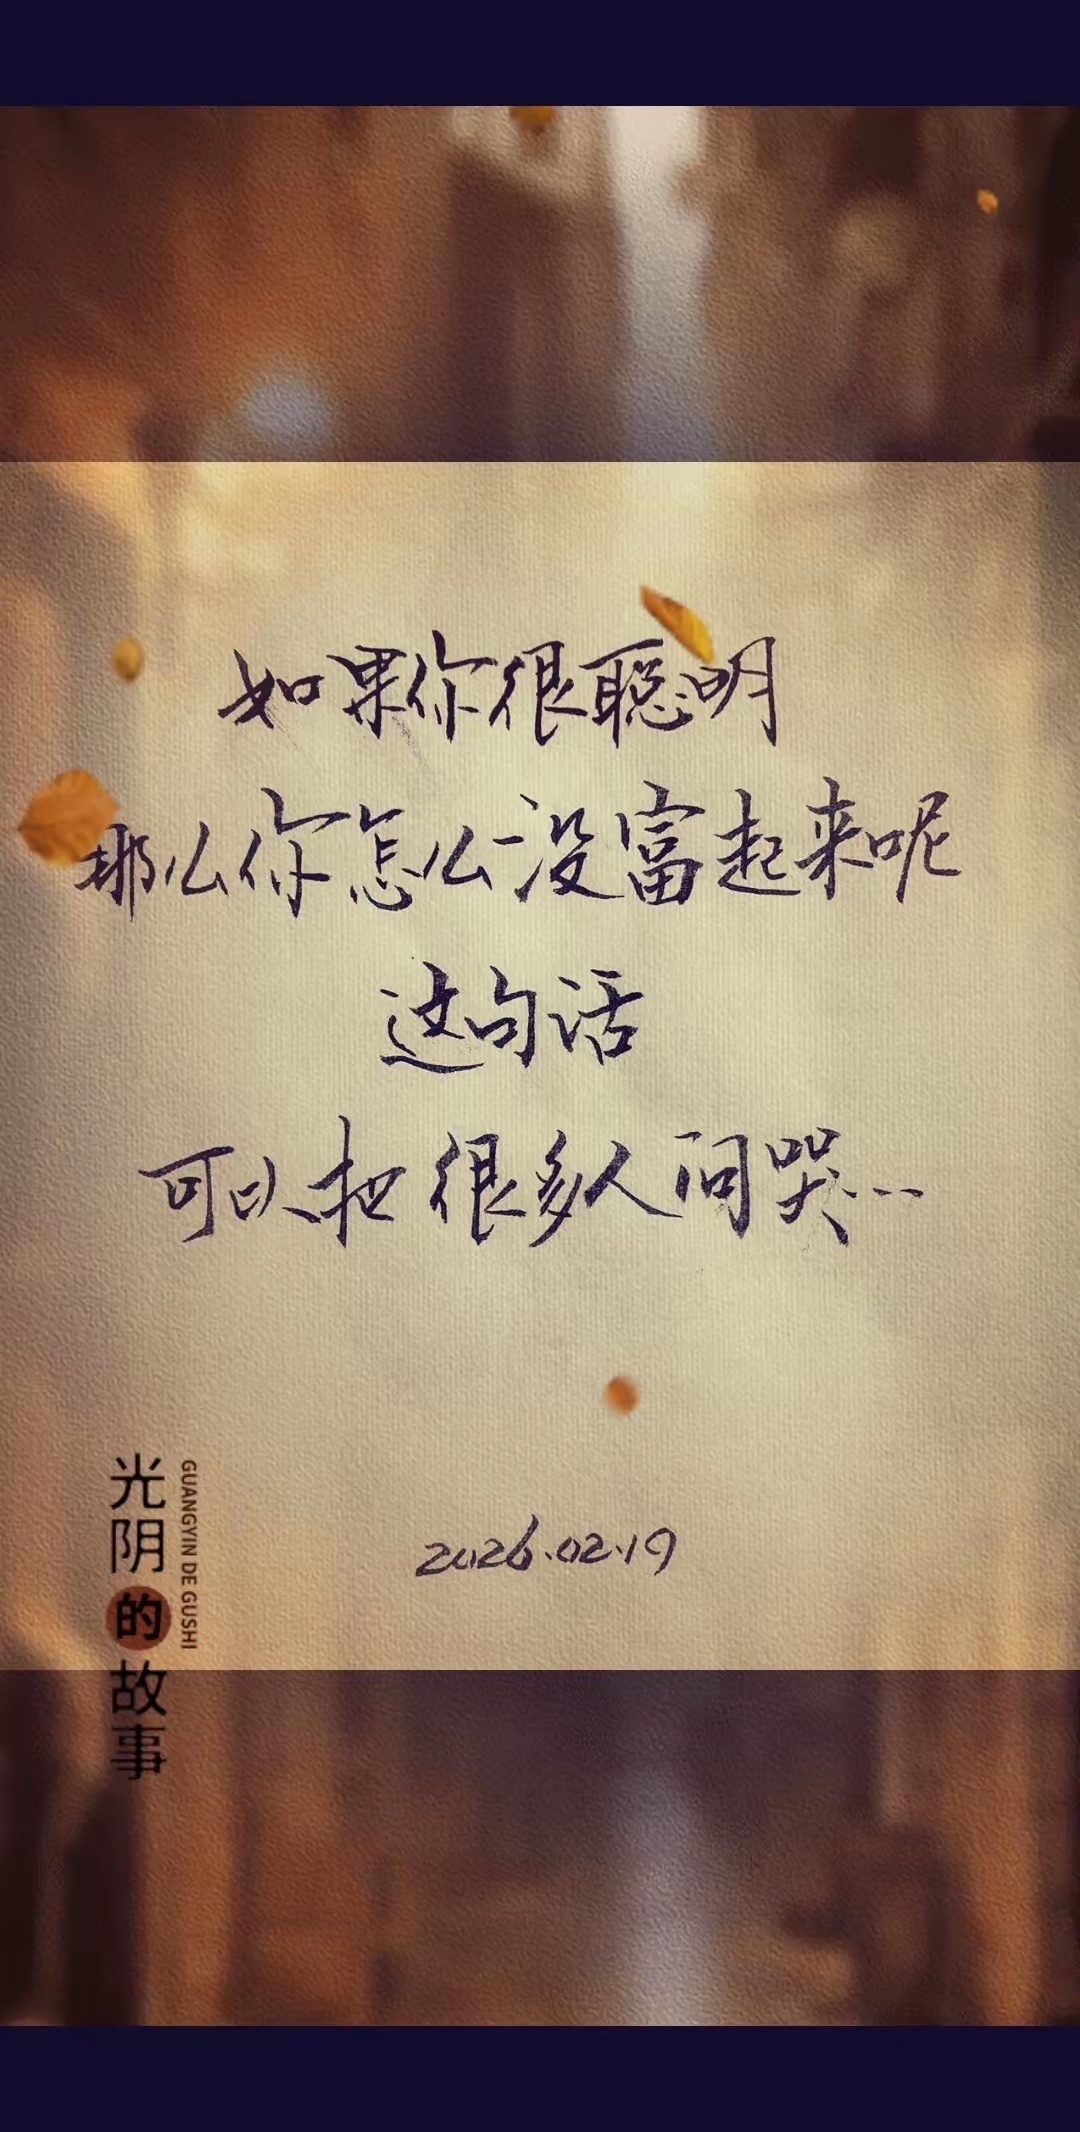 如果你很聪明
那么你怎么没富起来呢
这句话
可以把很多人问哭...
光阴的故事
GUANGYIN DE GUSHI
2026.02.19